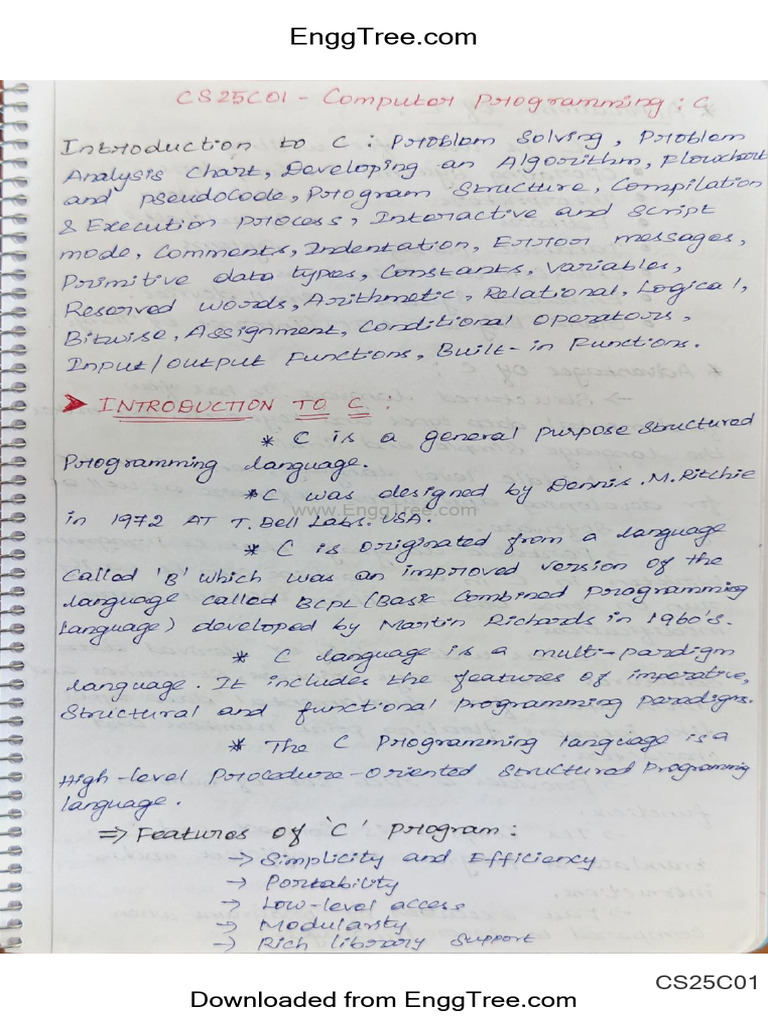 EnggTree.com
CS25C01 - Computer Programming : C
Introduction to C : Problem Solving, Problem
Analysis Chart, Developing an Algorithm, Flowchart
and pseudocode, Program Structure, Compilation
& Execution process, Interactive and Script
mode, Comments, Indentation, Error messages,
Primitive data types, Constants, variables,
Reserved words, Arithmetic, Relational, Logical,
Bitwise, Assignment, Conditional operators,
Input/output Functions, Built-in Functions.
➤ INTRODUCTION TO C :
* C is a general purpose structured
Programming language.
* C was designed by Dennis .M. Ritchie
www.EnggTree.com
in 1972 AT T. Bell Labs. USA.
* C is originated from a language
called 'B' which was an improved version of the
language called BCPL (Basic Combined programming
language) developed by Martin Richards in 1960's.
* C language is a multi-pardigm
language. It includes the features of imperative,
structural and functional programming paradigms.
* The C Programming language is a
High-level Procedure-oriented structural Programming
language.
⇒ Features of 'C' program :
→ Simplicity and Efficiency
→ Portability
→ Low-level access
→ Modularity
→ Rich library support
CS25C01
Downloaded from EnggTree.com